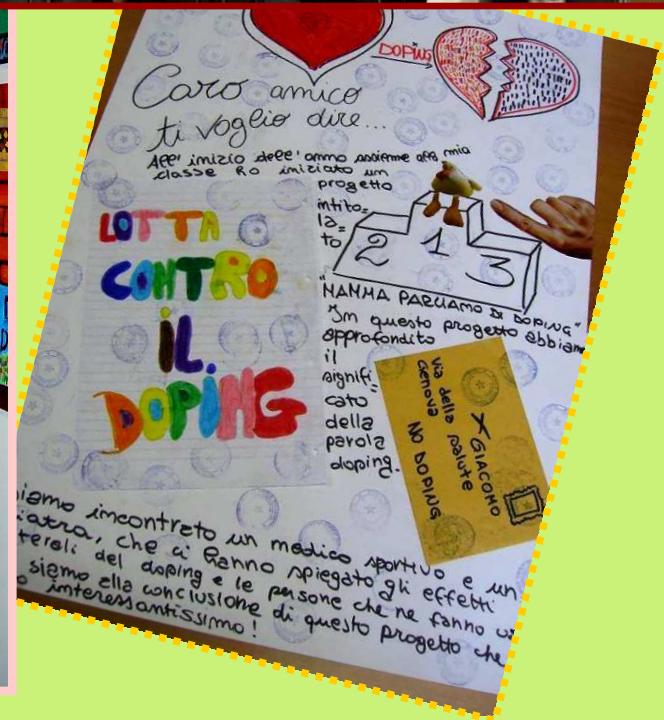 DOPING
Caro amico
ti voglio dire...
All' inizio dell' anno assieme alla mia
classe ho iniziato un
progetto
intito=
la=
to
2 1 3
"MAMMA PARLIAMO DI DOPING"
In questo progetto abbiam
approfondito
il
signifi
cato
della
parola
doping.
LOTTA
CONTRO
IL.
DOPING
X GIACOMO
Via della salute
Genova NO DOPING
iamo incontrato un medico sportivo e un
iatra, che ci hanno spiegato gli effetti
terali del doping e le persone che ne fanno u
siamo alla conclusione di questo progetto che
o interessantissimo!